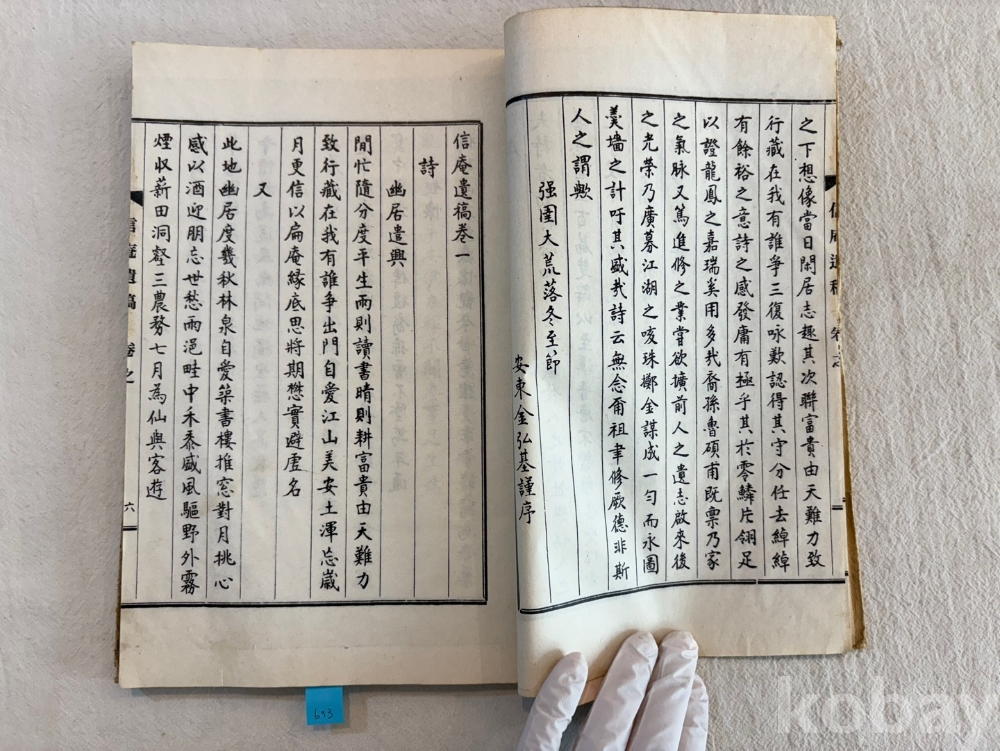 之下想像當日閑居志趣其次聯富貴由天難力致
行藏在我有誰爭三復咏歎認得其守分任去綽綽
有餘裕之意詩之感發庸有極乎其於零鱗片翎足
以證龍鳳之嘉瑞奚用多㢤裔孫魯碩甫旣禀乃家
之氣脉又篤進修之業嘗欲擴前人之遺志啟來後
之光榮乃廣募江湖之咳珠擲金謀成一匀而永圖
羹墻之計吁其盛㢤詩云無念爾祖聿修厥德非斯
人之謂歟
强圉大荒落冬至節
安東金弘基謹序
信庵遺稿卷一
詩
幽居遣興
閒忙隨分度平生雨則讀書晴則耕富貴由天難力
致行藏在我有誰爭出門自愛江山美安土渾忘歲
月更信以扁庵緣底思將期懋實避虛名
又
此地幽居度幾秋林泉自愛築書樓推窓對月挑心
感以酒迎朋忘世愁雨浥畦中禾黍盛風驅野外霧
煙収薪田洞壑三農務七月為仙與客遊
信庵遺稿
卷之
六
653
kobay